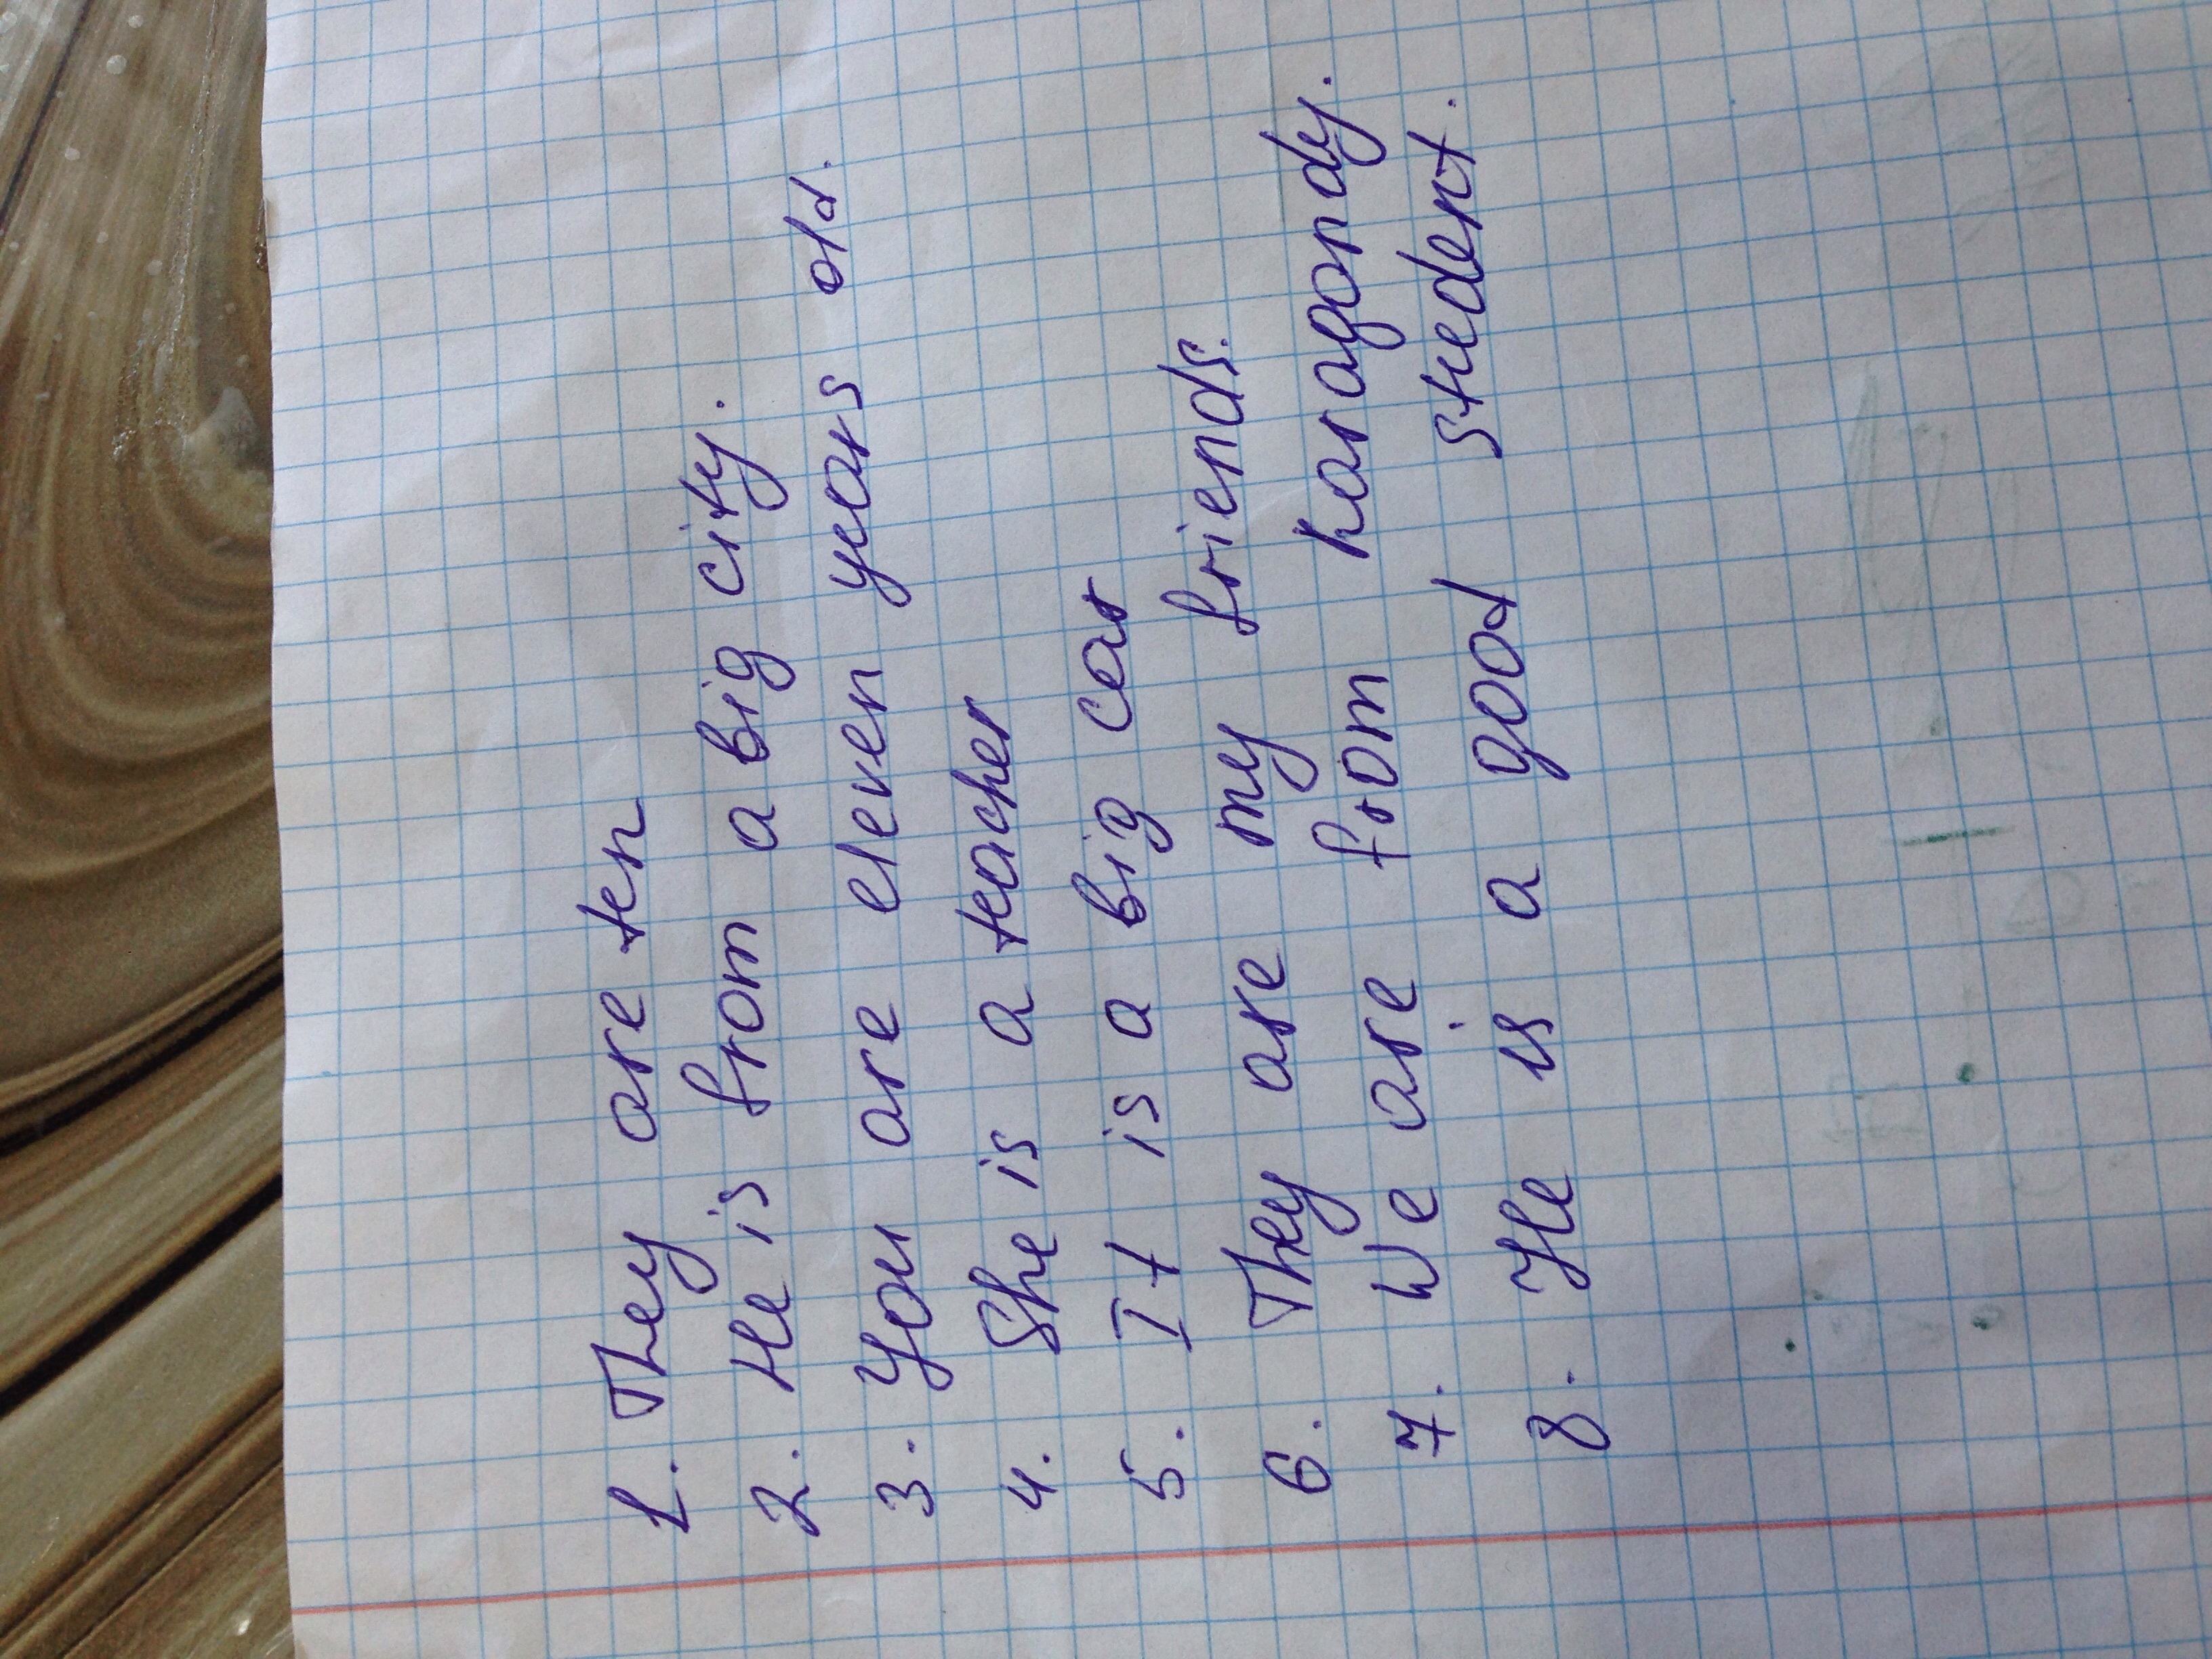 1. They are ten
2. He is from a big city.
3. You are eleven years old.
4. She is a teacher
5. It is a big car
6. They are my friends.
7. We are from karagondy.
8. He is a good student.